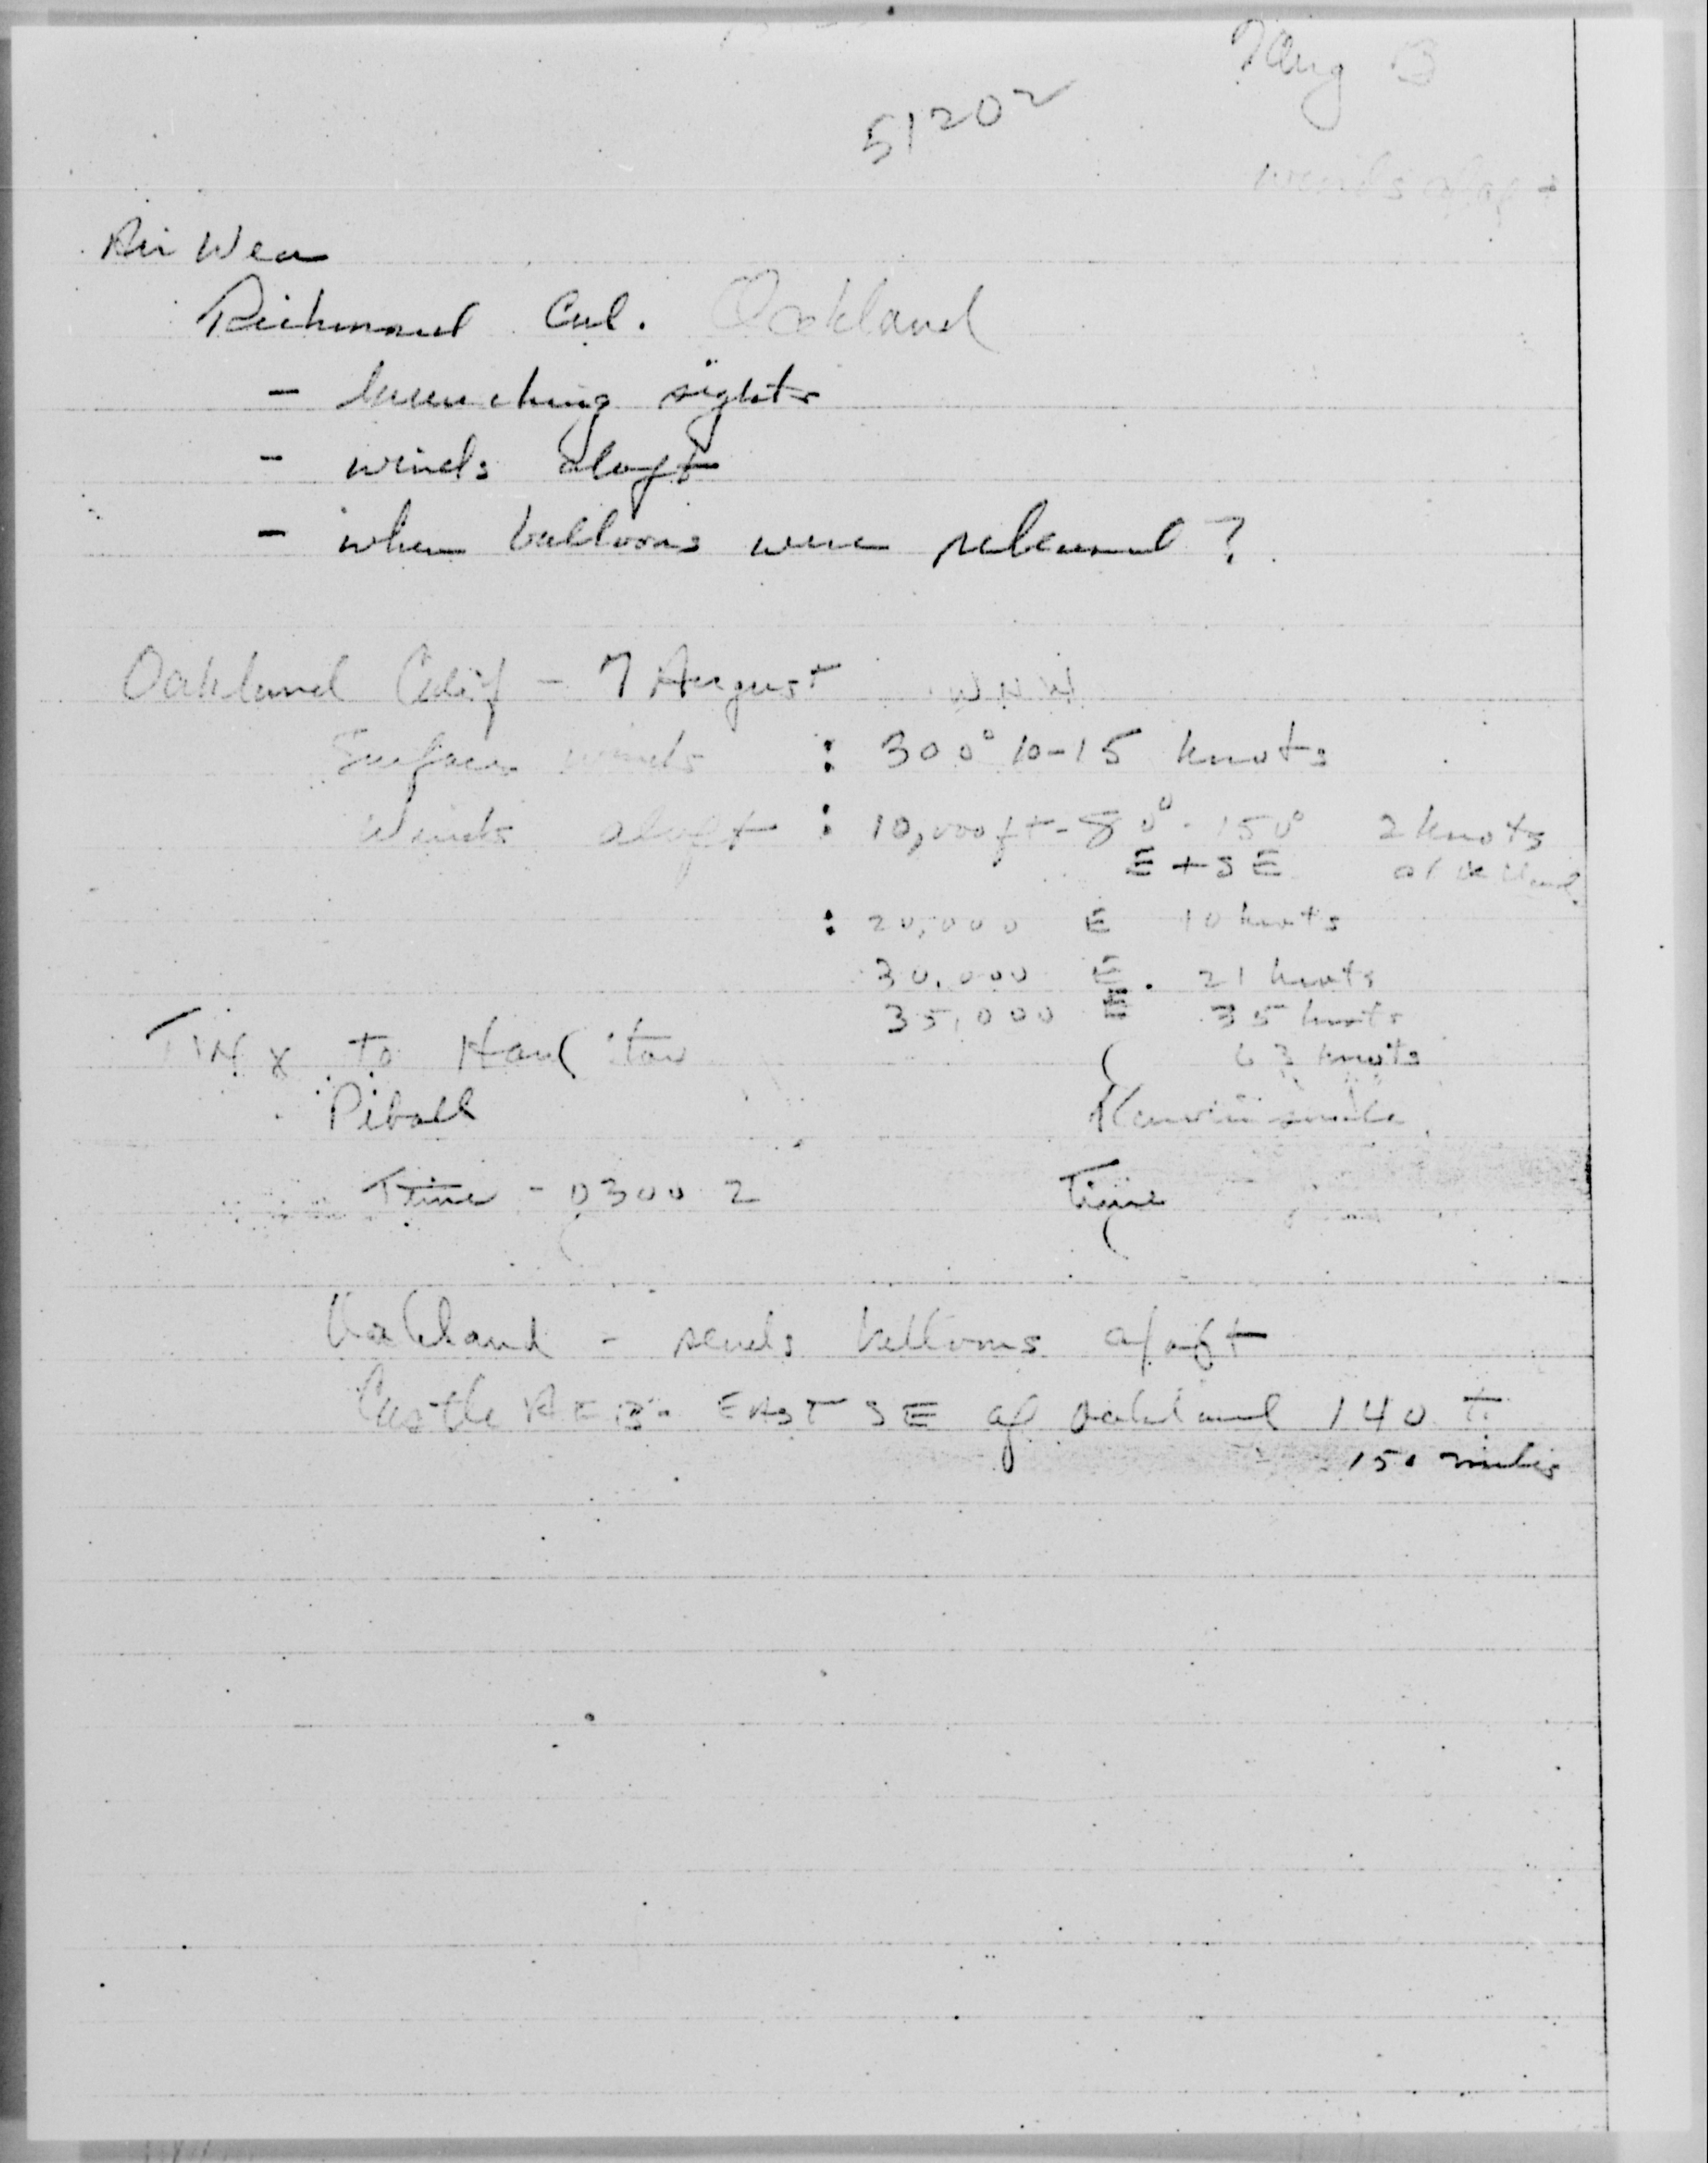 7 Aug
51202
winds aloft
Air Wea
Richmond Cal. Oakland
- launching sights
- winds aloft
- when balloons were released?
Oakland Calif - 7 August WNW
Surface winds : 300° 10-15 knots
Winds aloft : 10,000 ft - 80° - 150° 2 knots
E + SE
: 20,000 E 10 knots
30,000 E. 21 knots
35,000 E 35 knots
to
63 knots
Piball
Time - 0300 Z Time
Oakland - sends balloons aloft
Castle AFB - EAST SE of Oakland 140 to
150 miles